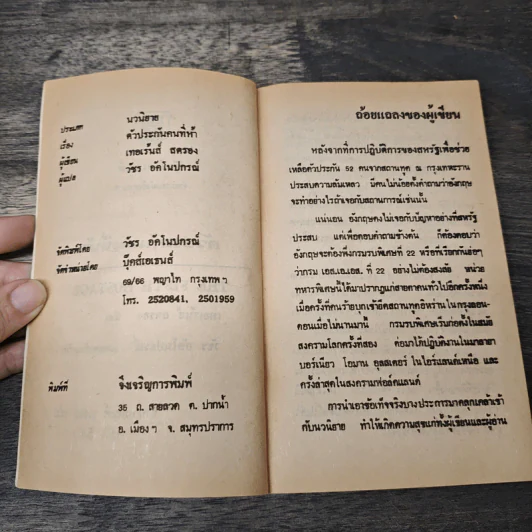 ประเภท นวนิยาย
เรื่อง ตัวประกันคนที่ห้า
ผู้เขียน เทอเร้นส์ สตรอง
ผู้แปล วัชร อัคโนปกรณ์
จัดพิมพ์โดย วัชร อัคโนปกรณ์
จัดจำหน่ายโดย บุ๊คส์เอเรนส์
69/66 พญาไท กรุงเทพฯ
โทร. 2520841, 2501959
พิมพ์ที่ จึงเจริญการพิมพ์
35 ถ. สายลวด ต. ปากน้ำ
อ. เมืองฯ จ. สมุทรปราการ
ถ้อยแถลงของผู้เขียน
หลังจากที่การปฏิบัติการของสหรัฐเพื่อช่วย
เหลือตัวประกัน 52 คนจากสถานทูต ณ กรุงเทหะราน
ประสบความล้มเหลว มีคนไม่น้อยตั้งคำถามว่าอังกฤษ
จะทำอย่างไรถ้าเจอกับสถานการณ์เช่นนั้น
แน่นอน อังกฤษคงไม่เจอกับปัญหาอย่างที่สหรัฐ
ประสบ แต่เพื่อตอบคำถามข้างต้น ก็ต้องตอบว่า
อังกฤษจะต้องพึ่งกรมรบพิเศษที่ 22 หรือที่เรียกกันย่อๆ
ว่ากรม เอส.เอ.เอส. ที่ 22 อย่างไม่ต้องสงสัย หน่วย
ทหารพิเศษนี้ได้มาปรากฏแก่สายตาคนทั่วไปอีกครั้งหนึ่ง
เมื่อครั้งที่คนร้ายบุกเข้ายึดสถานทูตอิหร่านในกรุงลอน-
ดอนเมื่อไม่นานมานี้ กรมรบพิเศษเริ่มก่อตั้งในสมัย
สงครามโลกครั้งที่สอง ต่อมาได้ปฏิบัติงานในมาลายา
บอร์เนียว โอมาน อุลสเตอร์ ในไอร์แลนด์เหนือ และ
ครั้งล่าสุดในสงครามฟอล์คแลนด์
การนำเอาข้อเท็จจริงบางประการมาคลุกเคล้าเข้า
กับนวนิยาย ทำให้เกิดความสุขแก่ทั้งผู้เขียนและผู้อ่าน